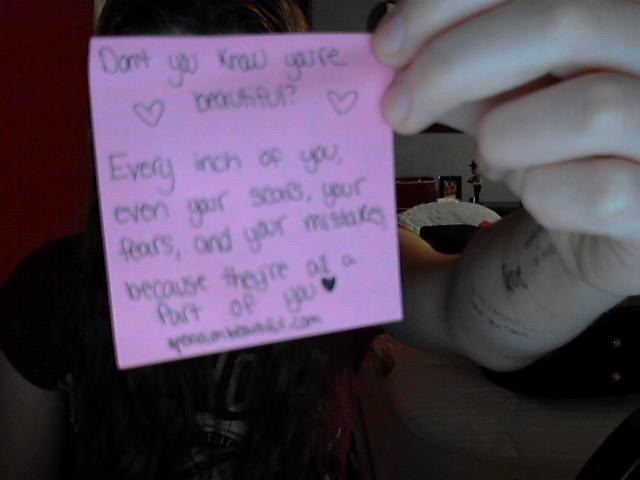 Don't you know you're
beautiful?
Every inch of you,
even your scars, your
fears, and your mistakes,
because they're all a
part of you
operationbeautiful.com
love